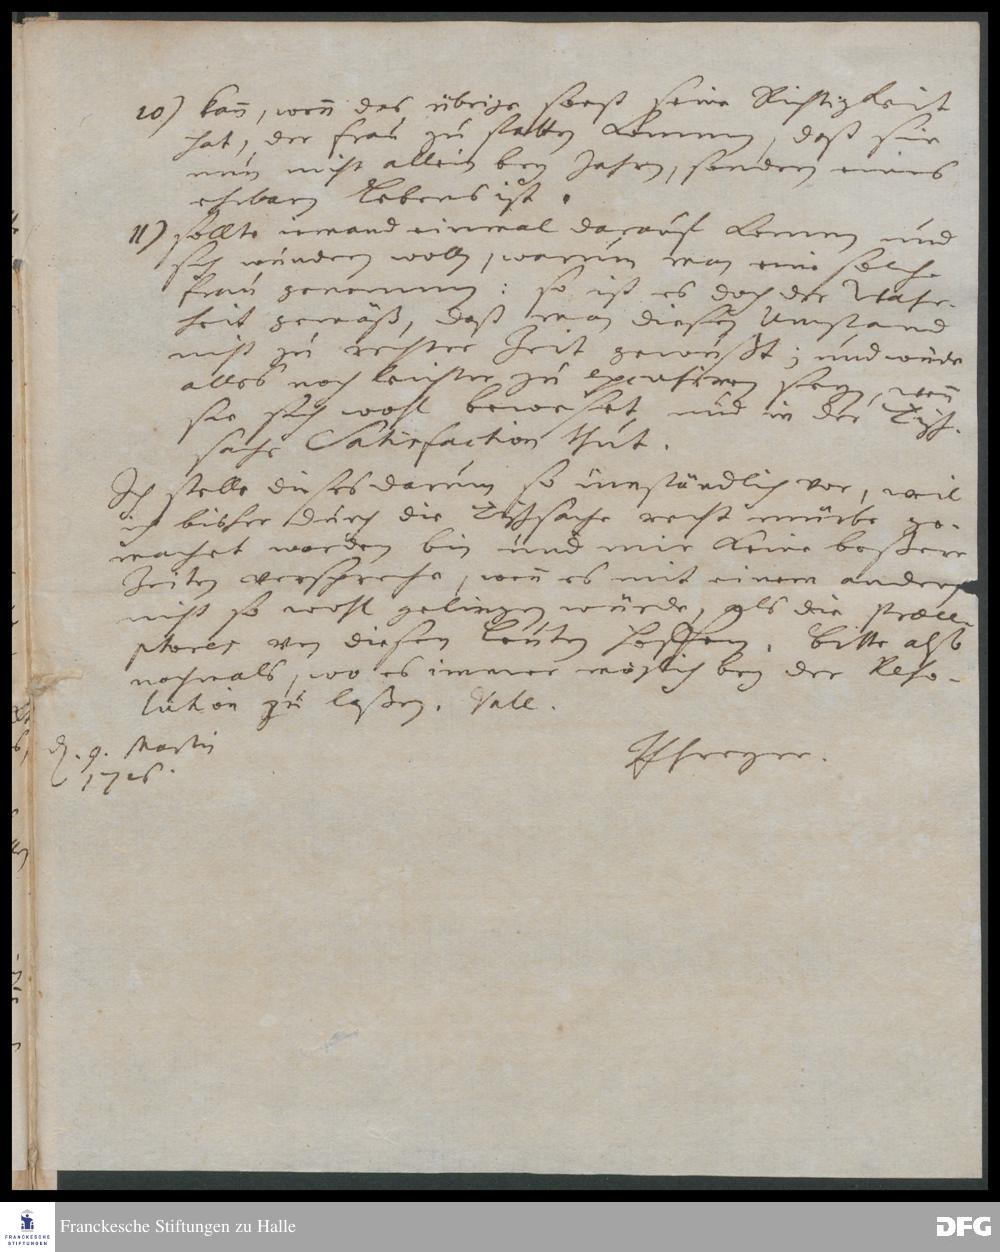 10) kan̄, wen̄ das übrige sonst seine Richtigkeit
hat, der Frau zu statten kommen, daß sie
nun nicht allein bey Jahren, sondern eines
ehrbaren Lebens ist.
11) sollte iemand einmal darauf kommen und
sich wundern wollen, warum man eine solche
Frau genommen: so ist es doch der Wahr-
heit gemäß, daß man diesen Umstand
nicht zu rechter Zeit gewußt; und würde
alles noch leichter zu excusiren seyn, wen̄
sie sich wohl beweiset und in der Tisch-
sache Satisfaction thut.
Ich stelle dieses darum so umständlich vor, weil
ich bisher durch die Tischsache recht mürbe ge-
machet worden bin und mir keine bessere
Zeiten verspreche, wen̄ es mit einem andern
nicht so wohl gelingen würde, als die Præce-
ptores von diesen Leuten hoffen. Bitte also
nochmals, wo es immer möglich bey der Reso-
lution zu laßen. Vale.
d. 9. Martii
1726.
Freyer.
FRANCKESCHE
STIFTUNGEN
Franckesche Stiftungen zu Halle
DFG